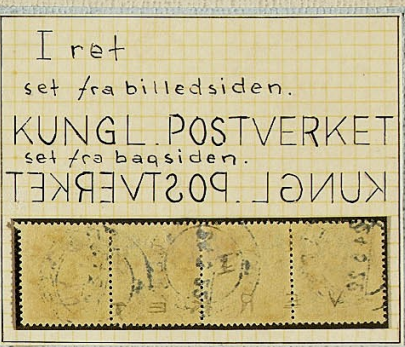 I ret
set fra billedsiden.
KUNGL. POSTVERKET
set fra bagsiden.
KUNGL. POSTVERKET